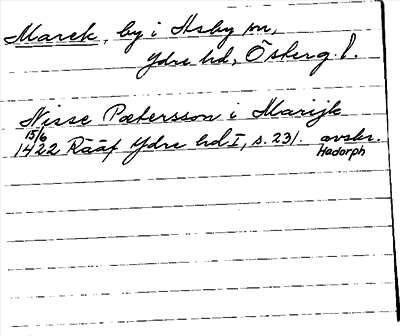 Marek, by i Asby sn,
Ydre hd, Östergl.
Nisse Pætersson i Marijk
15/6
1422 Rääf Ydre hd I, s. 231. avskr.
Hadorph